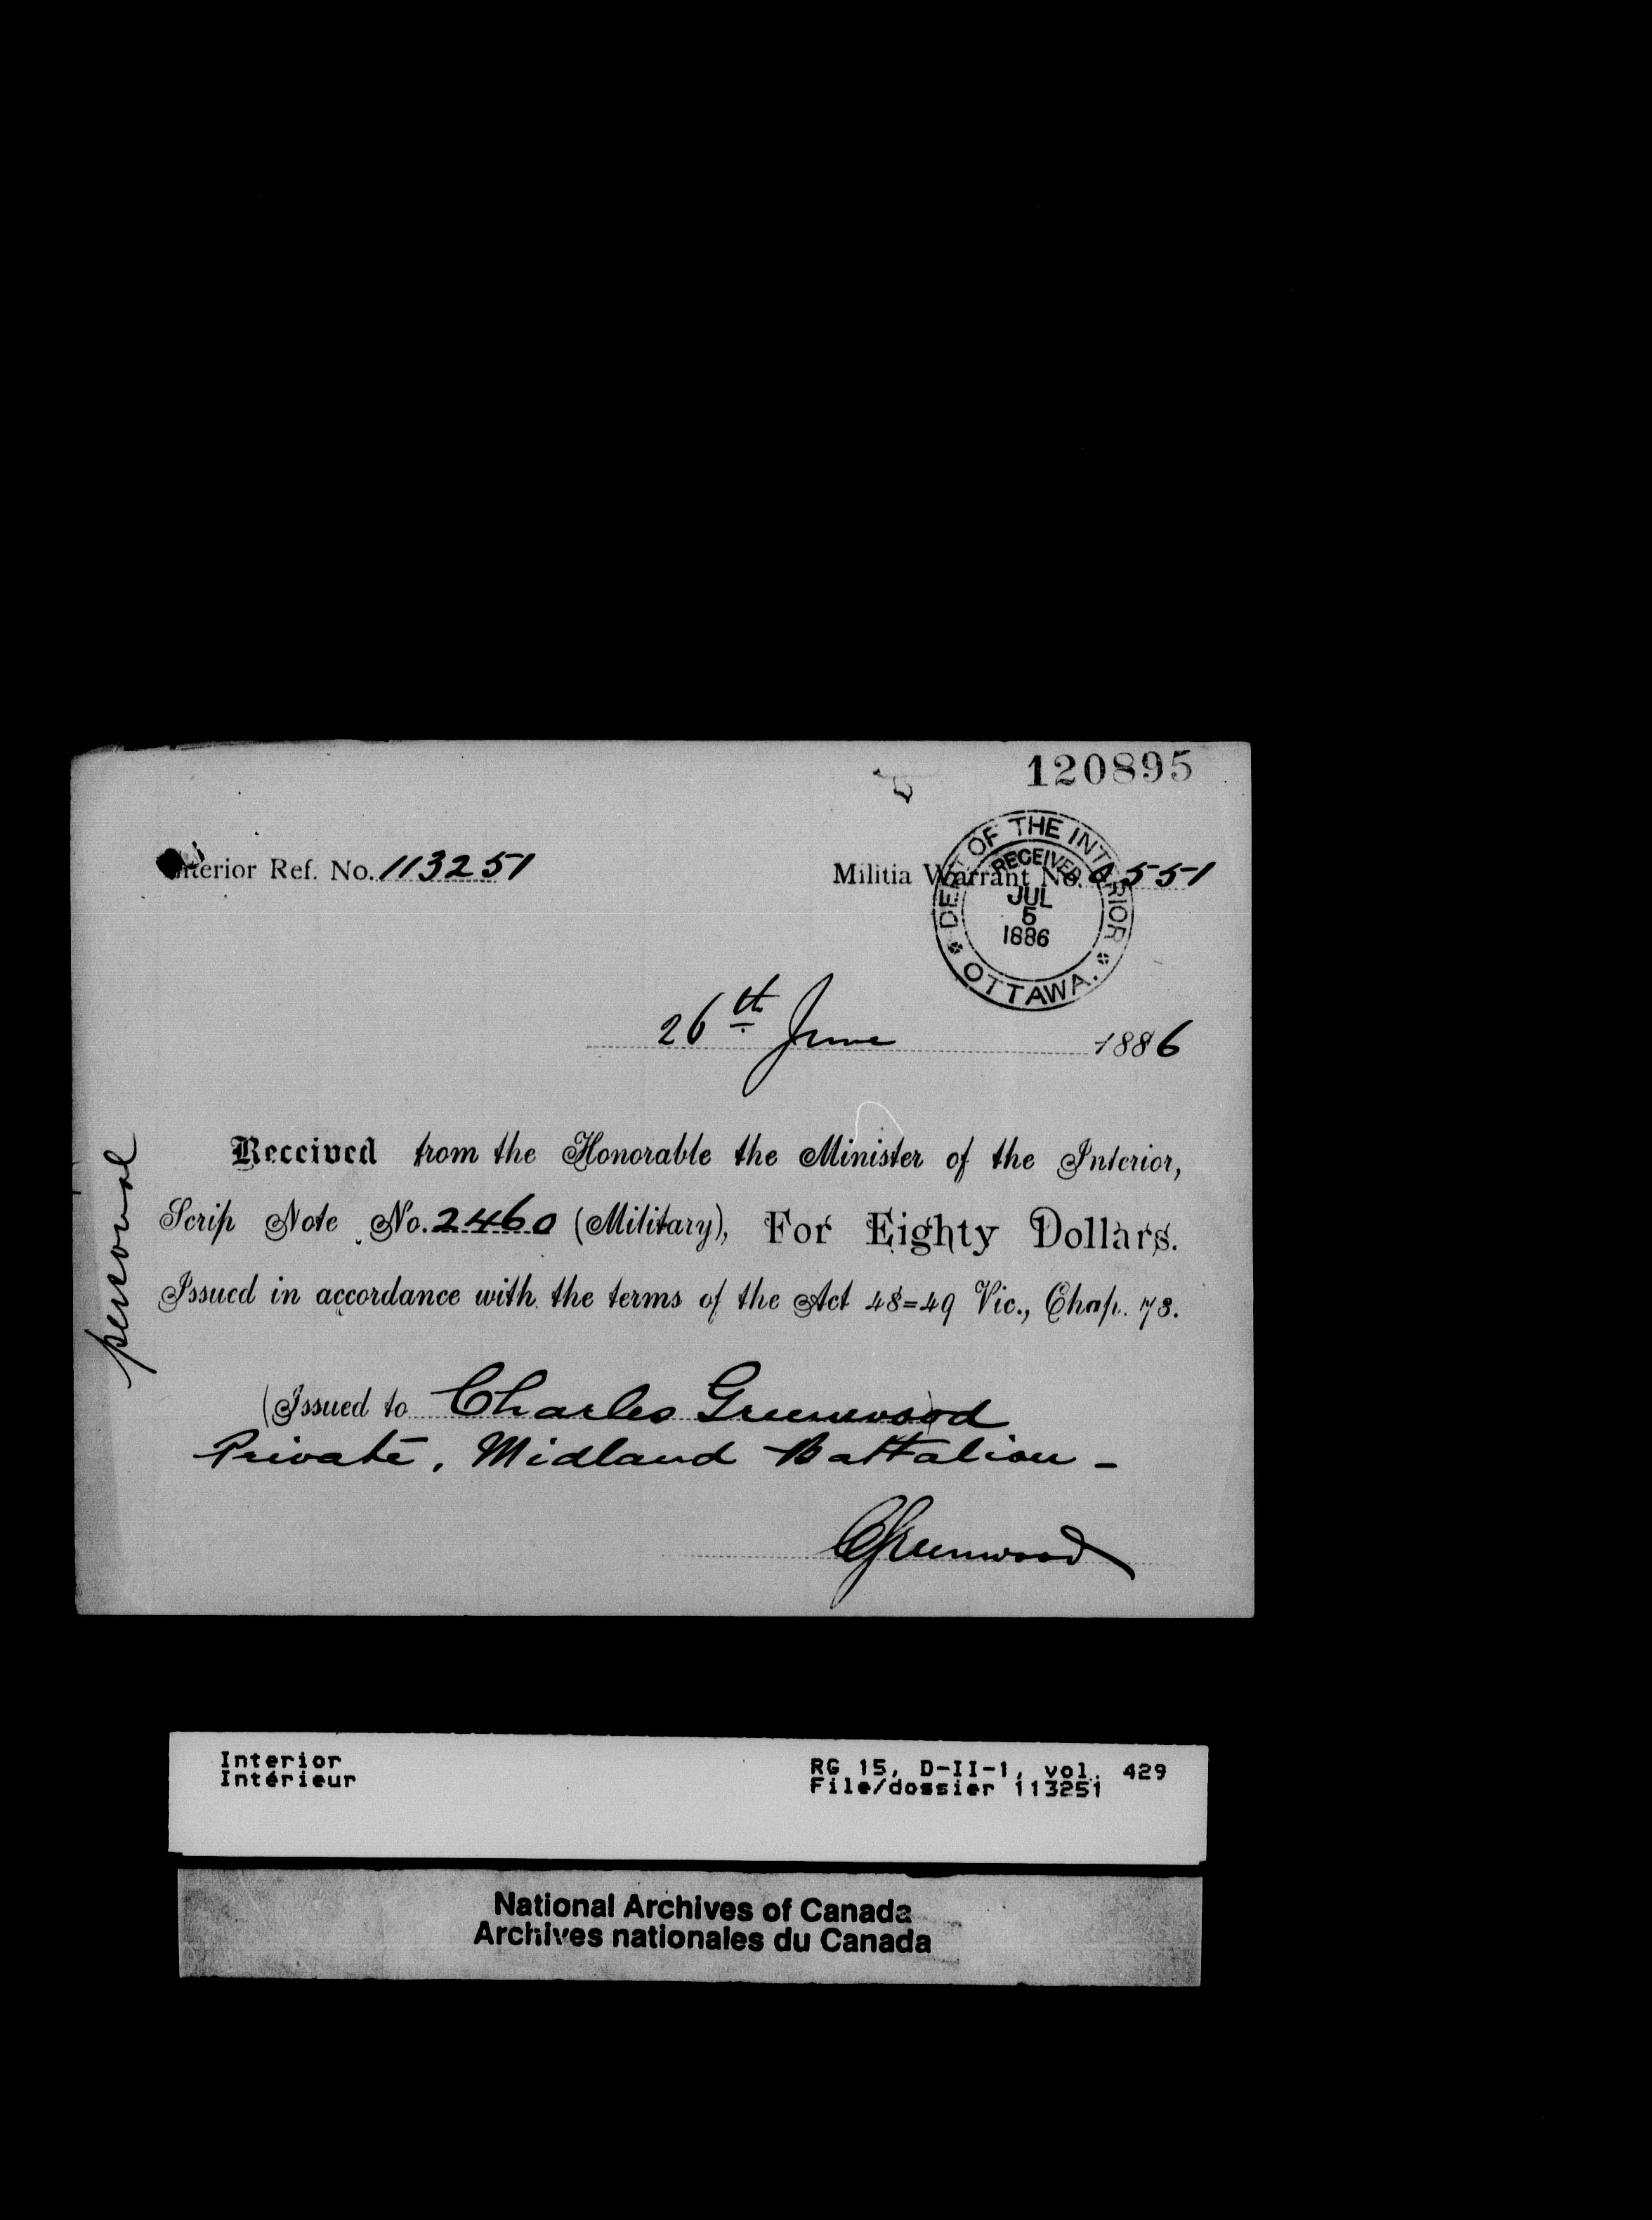 120895
Interior Ref. No. 113251
Militia Warrant No. 0551
DEPT OF THE INTERIOR
RECEIVED
JUL
5
1886
OTTAWA.
26th June 1886
Received from the Honorable the Minister of the Interior,
Scrip Note No. 2460 (Military), For Eighty Dollars.
Issued in accordance with the terms of the Act 48=49 Vic., Chap. 73.
personal
(Issued to Charles Greenwood)
Private, Midland Battalion -
CGreenwood
Interior
Intérieur
RG 15, D-II-1, vol. 429
File/dossier 113251
National Archives of Canada
Archives nationales du Canada